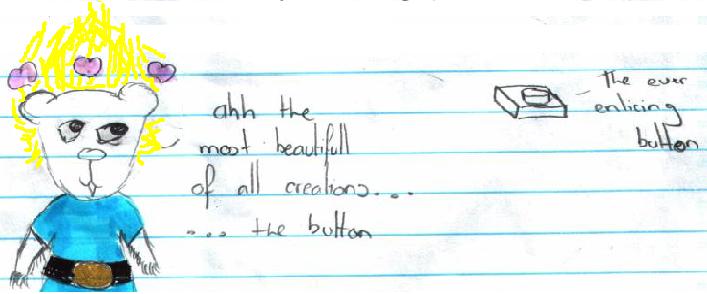 ahh the
most beautifull
of all creations...
... the button
the ever
enticing
button